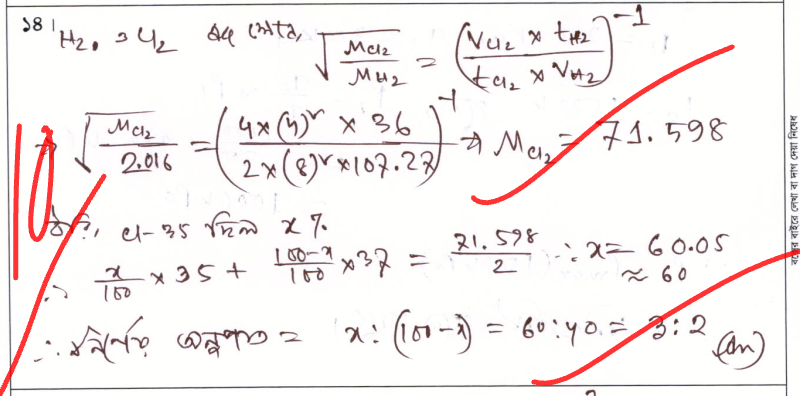 ১৪। H₂ ও Cl₂ এর ক্ষেত্রে, √(M_Cl₂/M_H₂) = ((V_Cl₂ × t_H₂)/(t_Cl₂ × V_H₂))⁻¹
→ √(M_Cl₂/2.016) = ((4×(4)² × 36)/(2×(8)²×107.27))⁻¹ → M_Cl₂ = 71.598
10
ধরি, Cl-35 ছিল x%
∴ x/100 × 35 + (100-x)/100 × 37 = 71.598/2 ∴ x = 60.05
≈ 60
∴ নির্ণেয় অনুপাত = x : (100-x) = 60:40 = 3:2 (An)
বক্সের বাইরে লেখা বা দাগ দেয়া নিষেধ